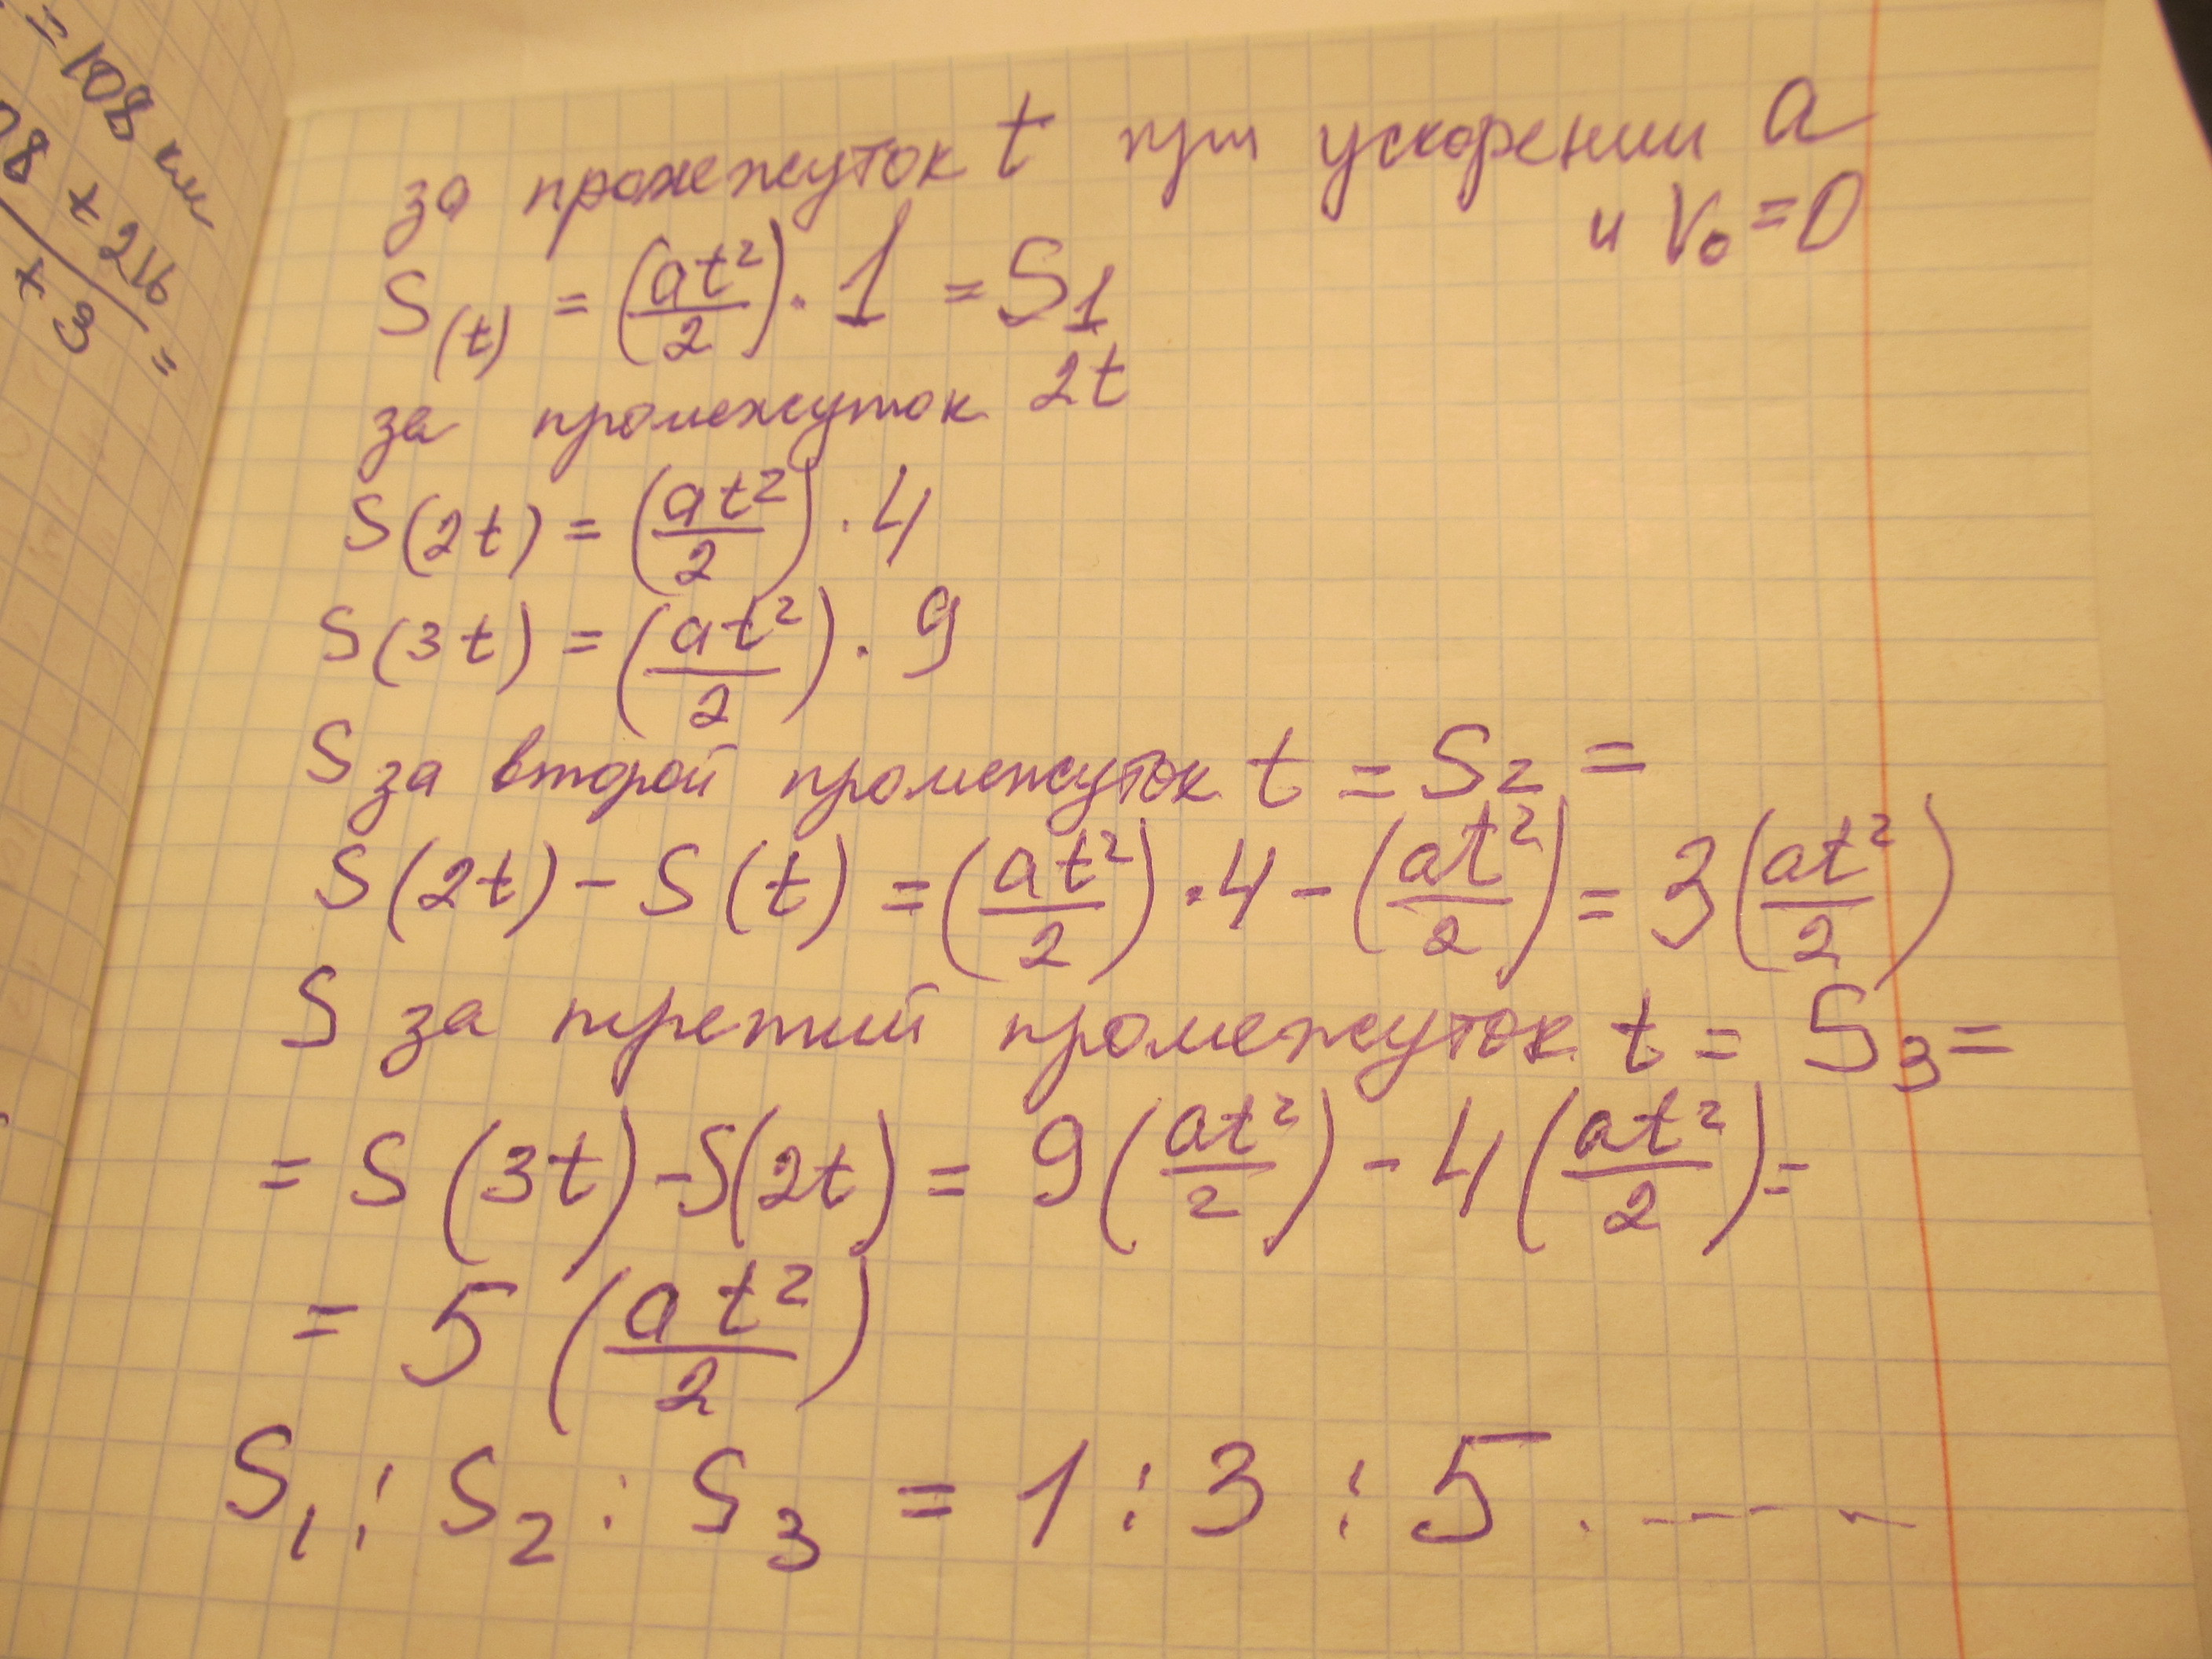 за прожежуток t при ускорении a
и V₀ = 0
S(t) = (at²/2) · 1 = S₁
за промежуток 2t
S(2t) = (at²/2) · 4
S(3t) = (at²/2) · 9
S за второй промежуток t = S₂ =
S(2t) - S(t) = (at²/2) · 4 - (at²/2) = 3(at²/2)
S за третий промежуток t = S₃ =
= S(3t) - S(2t) = 9(at²/2) - 4(at²/2) =
= 5(at²/2)
S₁ : S₂ : S₃ = 1 : 3 : 5 . - - - -
= 108 км
+ 216
+ 3 =